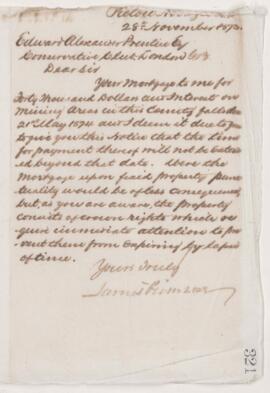 28th November 1873
Edward Alexander Prentice Esq
Conservative Club London
Dear Sir
Your Mortgage to me for
Forty Thousand Dollars and Interest on
Mining Areas in this County falls due
21st May 1874 and I deem it due to you
to give you this notice that the time
for payment thereof will not be extend
ed beyond that date. Were the
Mortgage upon paid property punc
tuality would be of less consequence
but, as you are aware, the property
consists of crown rights which re
quire immediate attention to pre
vent them from expiring by lapse
of time.
Yours truly
James
321